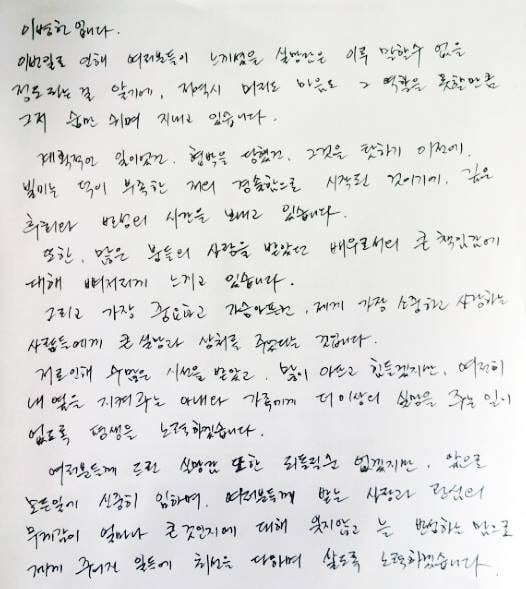 이병헌입니다.
이번일로 인해 여러분들이 느끼셨을 실망감은 이루 말할수 없을
정도라는걸 알기에, 저역시 머리도 마음도 그 역할을 못할만큼
그저 숨만 쉬며 지내고 있습니다.
계획적인 일이었건, 협박을 당했건, 그것을 탓하기 이전에,
빌미는 덕이 부족한 저의 경솔함으로 시작된 것이기에, 깊은
후회와 반성의 시간을 보내고 있습니다.
또한, 많은 분들의 사랑을 받았던 배우로서의 큰 책임감에
대해 뼈저리게 느끼고 있습니다.
그리고 가장 중요하고 가슴아프건, 제게 가장 소중하고 사랑하는
사람들에게 큰 실망과 상처를 주었다는 것입니다.
저로인해 수많은 시선을 받았고, 많이 아프고 힘들겠지만, 여전히
내 옆을 지켜주는 아내와 가족에게 더이상의 실망을 주는일이
없도록 평생을 노력하겠습니다.
여러분들께 드린 실망감 또한 되돌릴순 없겠지만, 앞으로
모든일에 신중히 임하며, 여러분들께 받는 사랑과 관심의
무게감이 얼마나 큰것인지에 대해 잊지않고 늘 반성하는 맘으로
제게 주어진 일들에 최선을 다하며 살도록 노력하겠습니다.